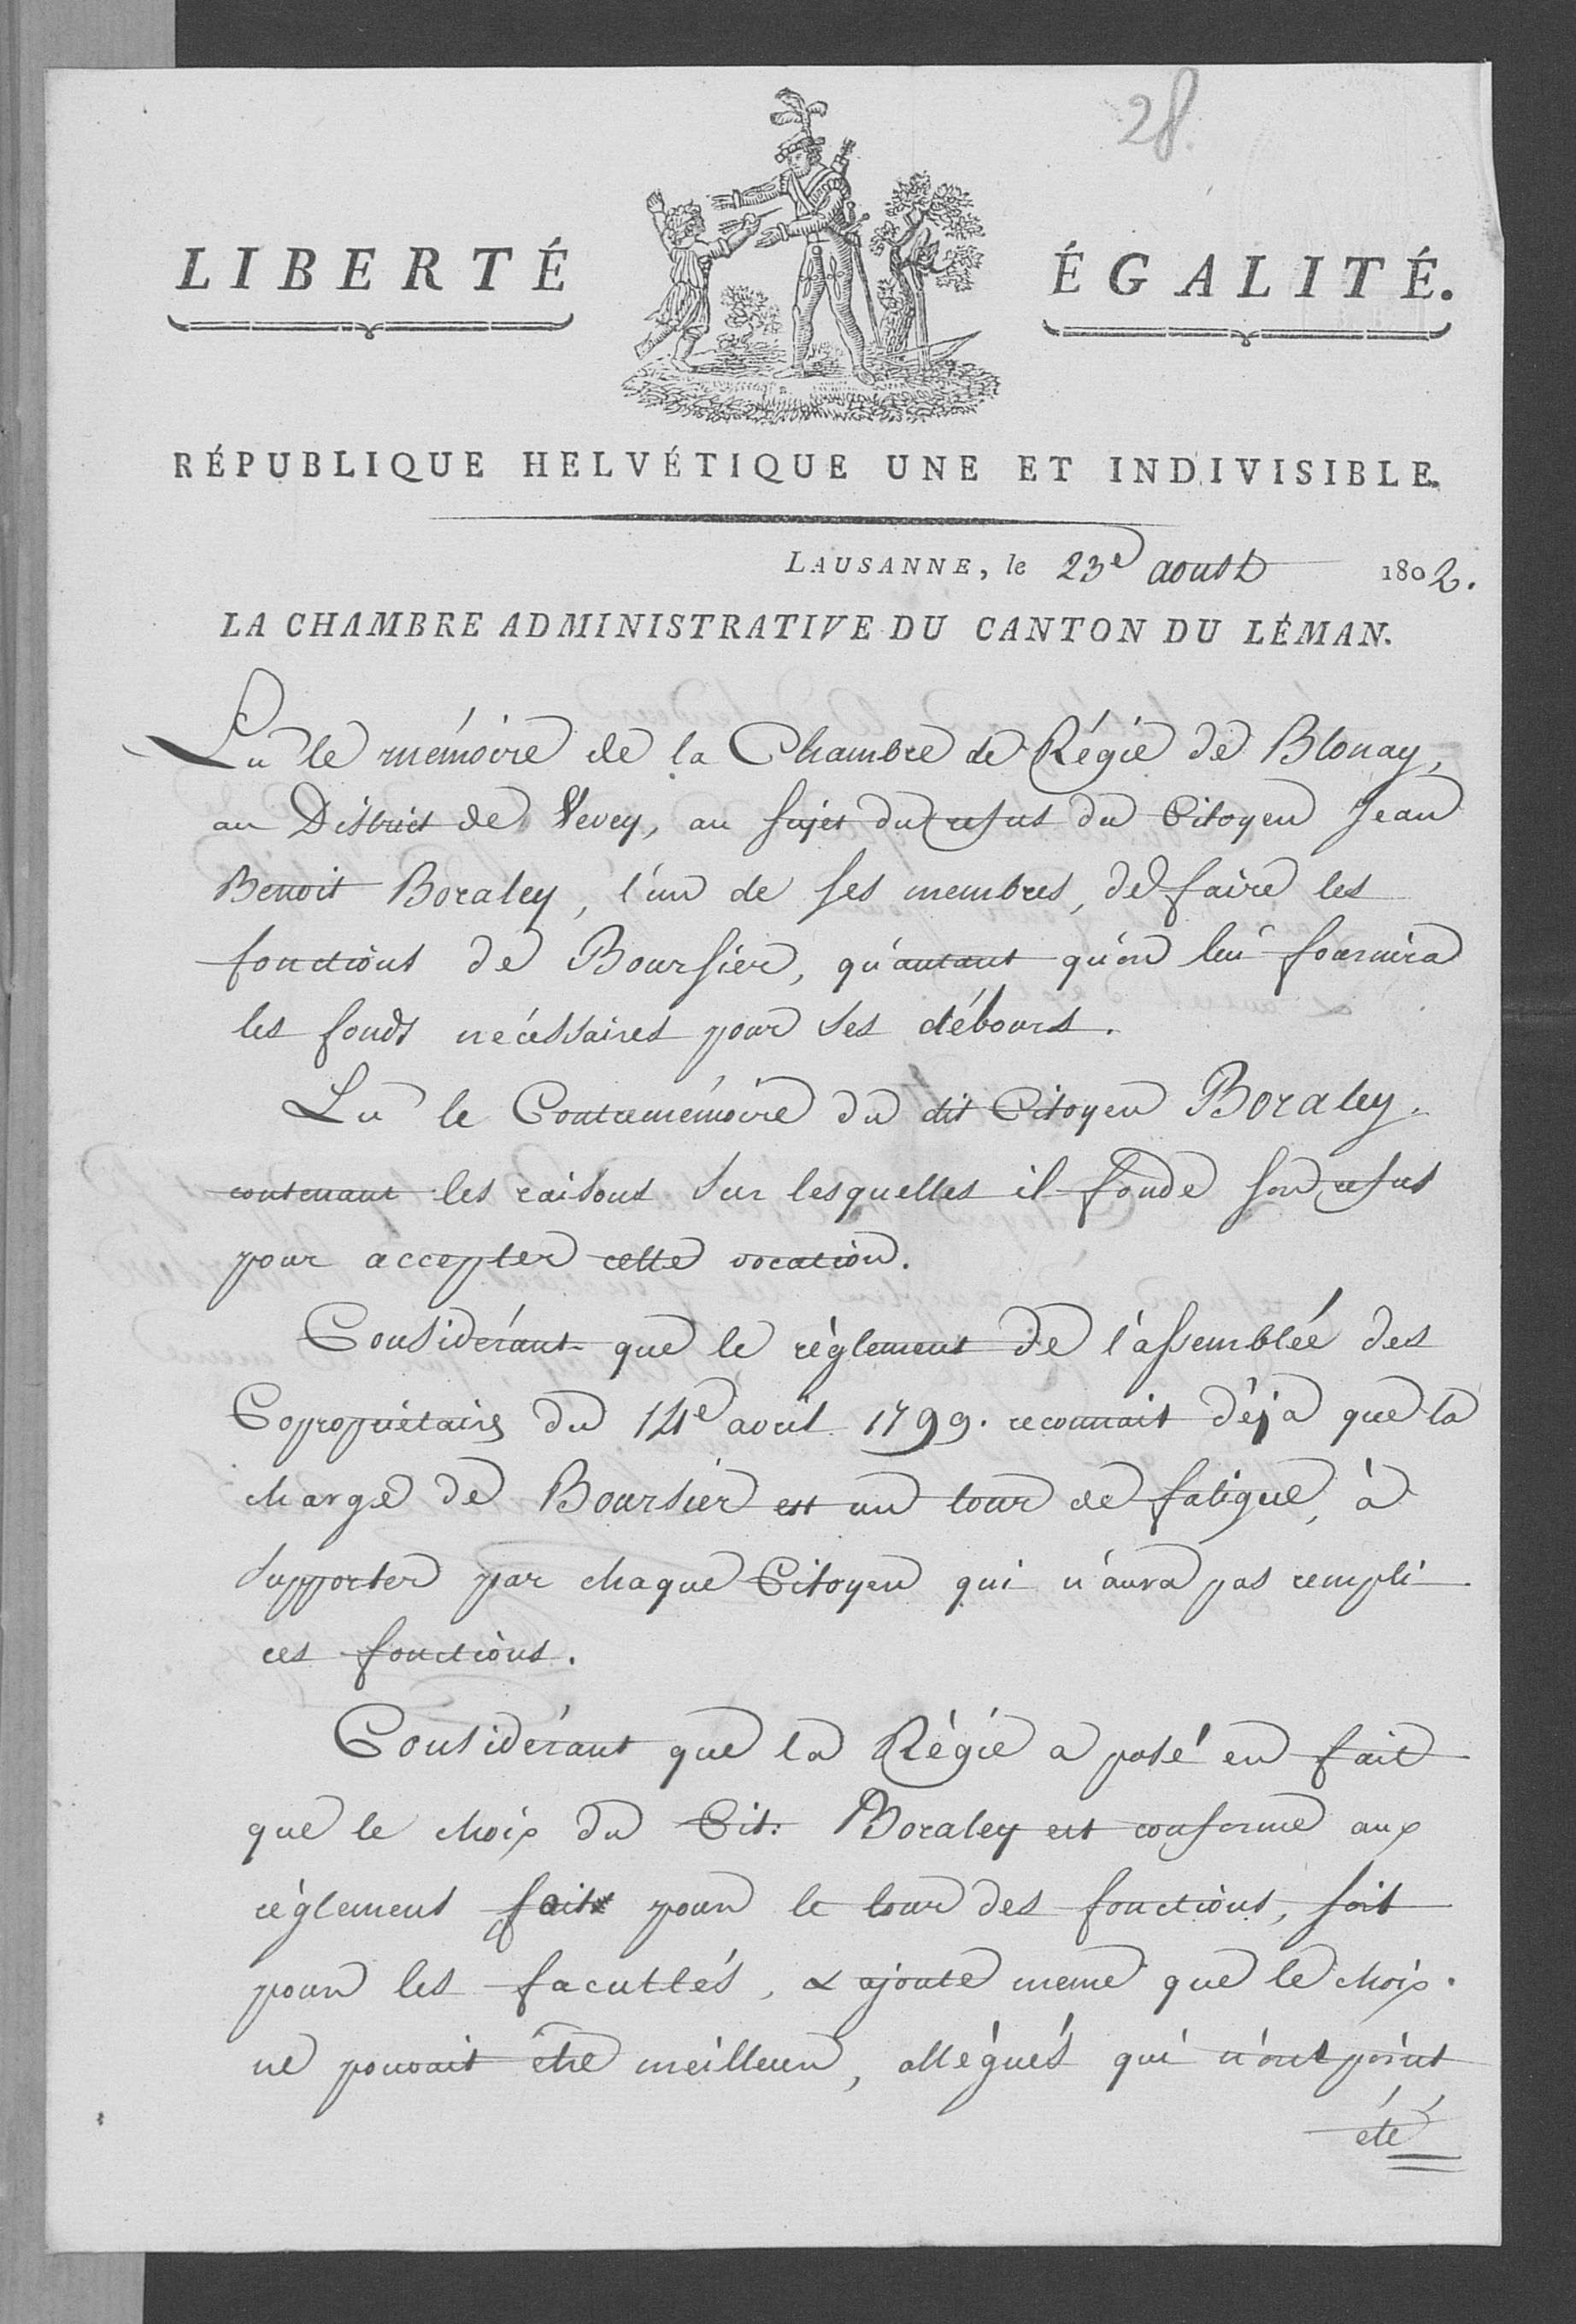 28.
LIBERTÉ ÉGALITÉ.
RÉPUBLIQUE HELVÉTIQUE UNE ET INDIVISIBLE.
LAUSANNE, le 23e aoust 1802.
LA CHAMBRE ADMINISTRATIVE DU CANTON DU LÉMAN.
Lu le mémoire de la Chambre de Régie de Blonay,
au District de Vevey, au sujet du refus du Citoyen Jean
Benoit Boraley, l'un de ses membres, de faire les
fonctions de Boursier, qu'autant qu'on lui fournira
les fonds nécessaires pour ses débours.
Lu le Contremémoire du dit Citoyen Boraley
contenant les raisons sur lesquelles il fonde son refus
pour accepter cette vocation.
Considérant que le règlement de l'assemblée des
Copropriétaires du 14e avril 1799. reconnait déja que la
charge de Boursier est un tour de fatigue, à
supporter par chaque Citoyen qui n'aura pas rempli
ces fonctions.
Considérant que la Régie a posé en fait
que le choix du Cit: Boraley est conforme aux
règlement fait pour le tour des fonctions, soit
pour les facultés, & ajoute meme que le choix
ne pouvait être meilleur, allégués qui n'ont point
été